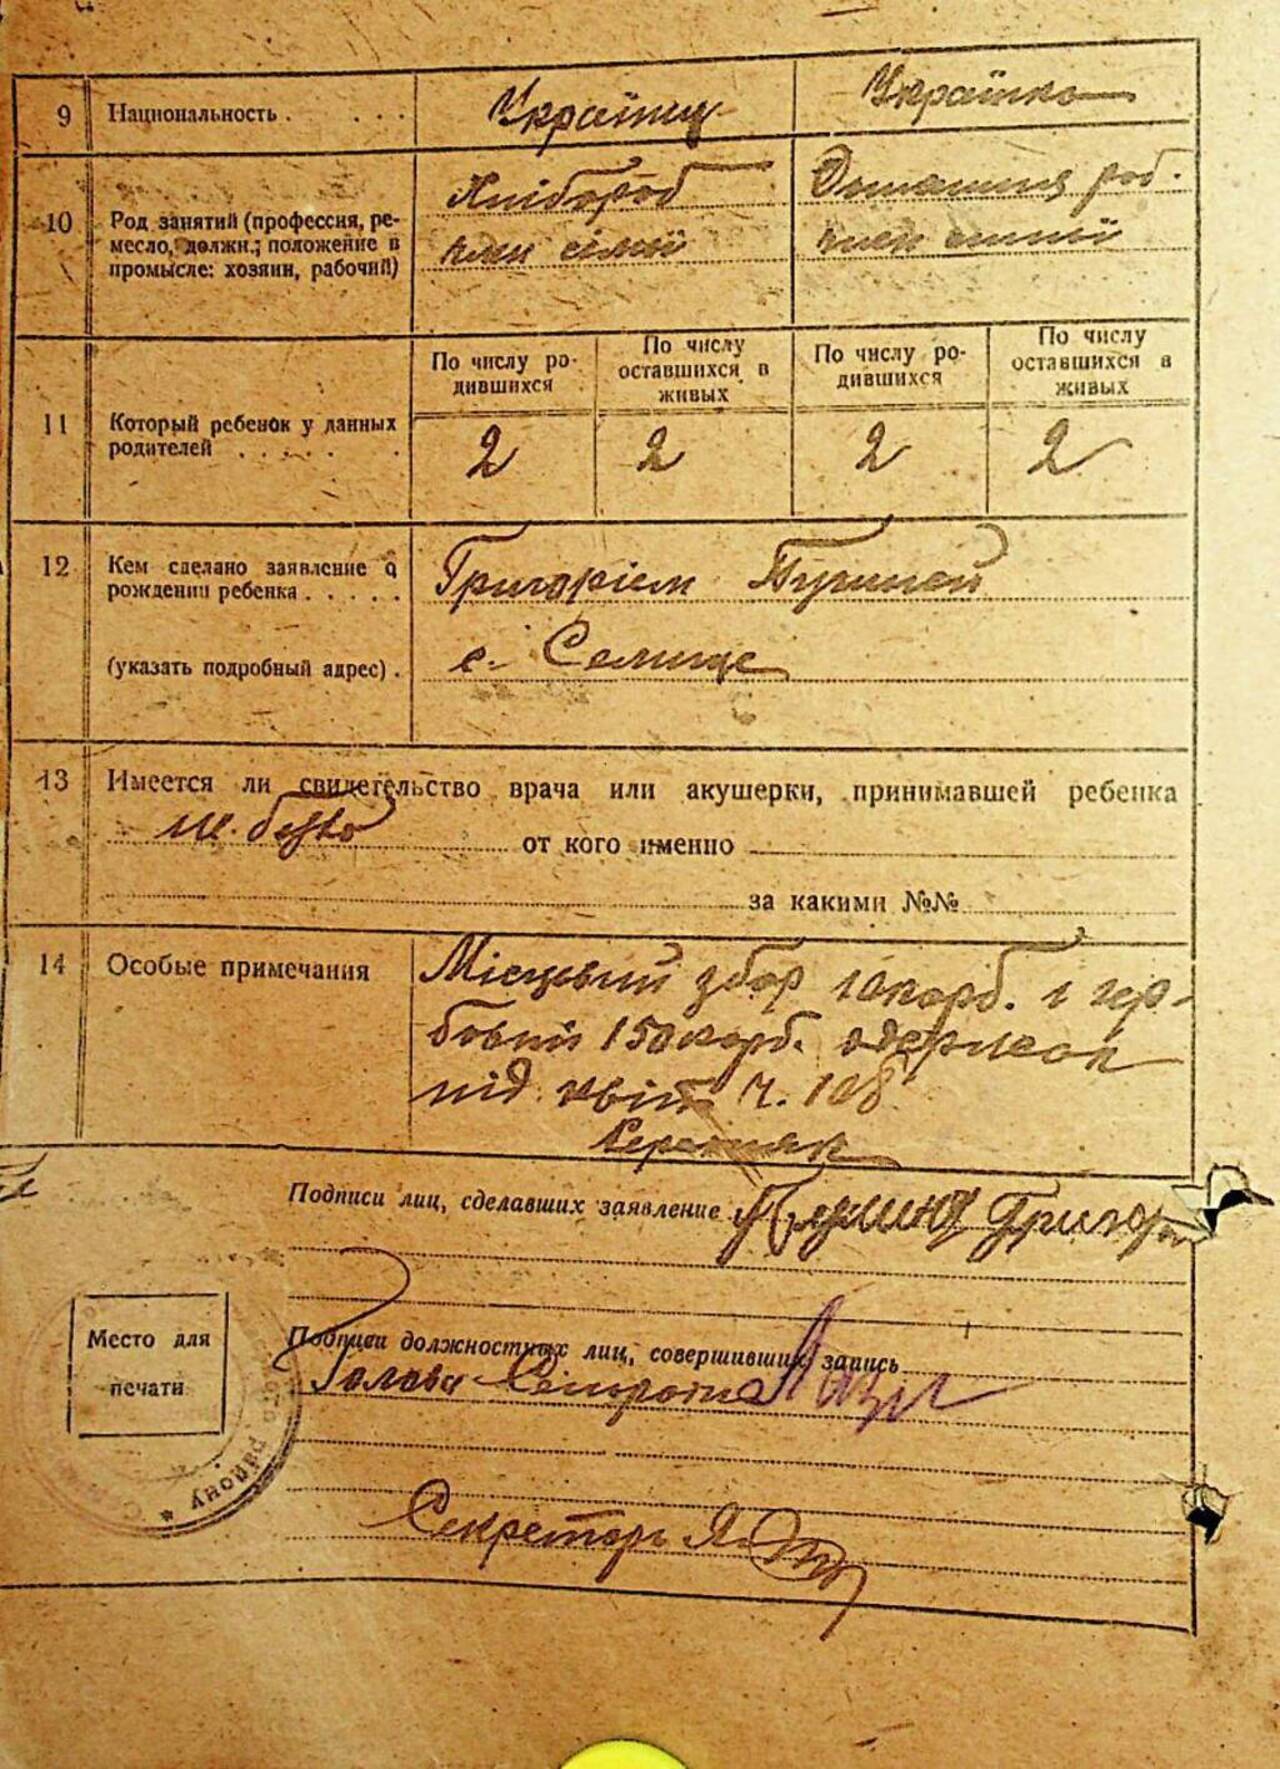 9 Национальность . . . . Українец Українка
10 Род занятий (профессия, ре-
месло, должн.; положение в
промысле: хозяин, рабочий)
Хлібороб
член сімії
Домашня роб.
член сімії
11 Который ребенок у данных
родителей . . . . . .
По числу ро-
дившихся
По числу
оставшихся в
живых
По числу ро-
дившихся
По числу
оставшихся в
живых
2 2 2 2
12 Кем сделано заявление о
рождении ребенка . . . . .
(указать подробный адрес) .
Григорієм
с. Селище
13 Имеется ли свидетельство врача или акушерки, принимавшей ребенка
от кого именно
за какими №№
14 Особые примечания
Місцевий збор 10 карб. і гер-
бовий 150 карб. одержал
під квіт ч. 108
Подписи лиц, сделавших заявление Григор
Место для
печати
Подписи должностных лиц, совершивших запись
Голова Сельради
Секретарь
району